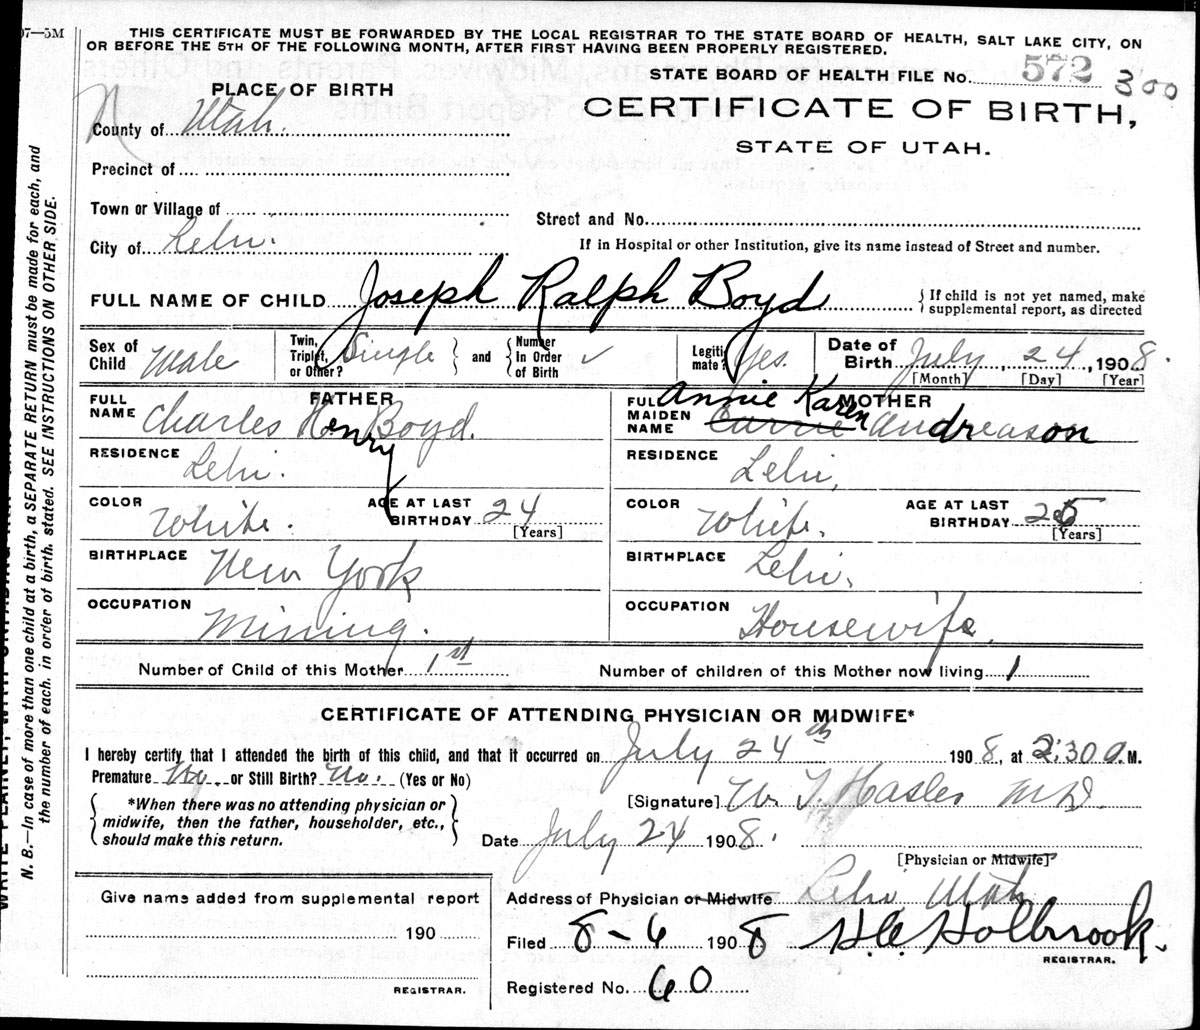 07—5M
THIS CERTIFICATE MUST BE FORWARDED BY THE LOCAL REGISTRAR TO THE STATE BOARD OF HEALTH, SALT LAKE CITY, ON
OR BEFORE THE 5TH OF THE FOLLOWING MONTH, AFTER FIRST HAVING BEEN PROPERLY REGISTERED.
STATE BOARD OF HEALTH FILE No. 572 300
PLACE OF BIRTH
CERTIFICATE OF BIRTH,
STATE OF UTAH.
County of Utah.
Precinct of
Town or Village of
Street and No.
City of Lehi.
If in Hospital or other Institution, give its name instead of Street and number.
FULL NAME OF CHILD Joseph Ralph Boyd
{ If child is not yet named, make
supplemental report, as directed
Sex of Child Male
Twin, Triplet, or Other? Single } and { Number In Order of Birth ✓
Legitimate? Yes.
Date of Birth July 24, 1908.
[Month] [Day] [Year]
FATHER
FULL NAME Charles Henry Boyd.
RESIDENCE Lehi.
COLOR White.
AGE AT LAST BIRTHDAY 24
[Years]
BIRTHPLACE New York
OCCUPATION Mining.
MOTHER
FULL MAIDEN NAME Annie Karen Carrie Andreason
RESIDENCE Lehi,
COLOR White.
AGE AT LAST BIRTHDAY 25
[Years]
BIRTHPLACE Lehi,
OCCUPATION Housewife.
Number of Child of this Mother 1st
Number of children of this Mother now living 1
CERTIFICATE OF ATTENDING PHYSICIAN OR MIDWIFE*
I hereby certify that I attended the birth of this child, and that it occurred on July 24th 1908, at 2:30 a.M.
Premature No. or Still Birth? No. (Yes or No)
{ *When there was no attending physician or
midwife, then the father, householder, etc.,
should make this return. }
[Signature] Hasler M.D.
Date July 24 1908.
[Physician or Midwife]
Address of Physician or Midwife Lehi Utah
Give name added from supplemental report
190
REGISTRAR.
Filed 8-6 1908 H.C. Holbrook.
REGISTRAR.
Registered No. 60
N. B.—In case of more than one child at a birth, a SEPARATE RETURN must be made for each, and
the number of each, in order of birth, stated. SEE INSTRUCTIONS ON OTHER SIDE.